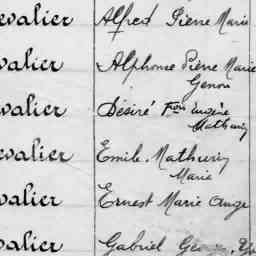 evalier Alfred Pierre Marie
valier Alphonse Pierre Marie
Genou
evalier Désiré Fois Eugène
Mathurin
evalier Emile Mathurin
Marie
evalier Ernest Marie Ange
evalier Gabriel